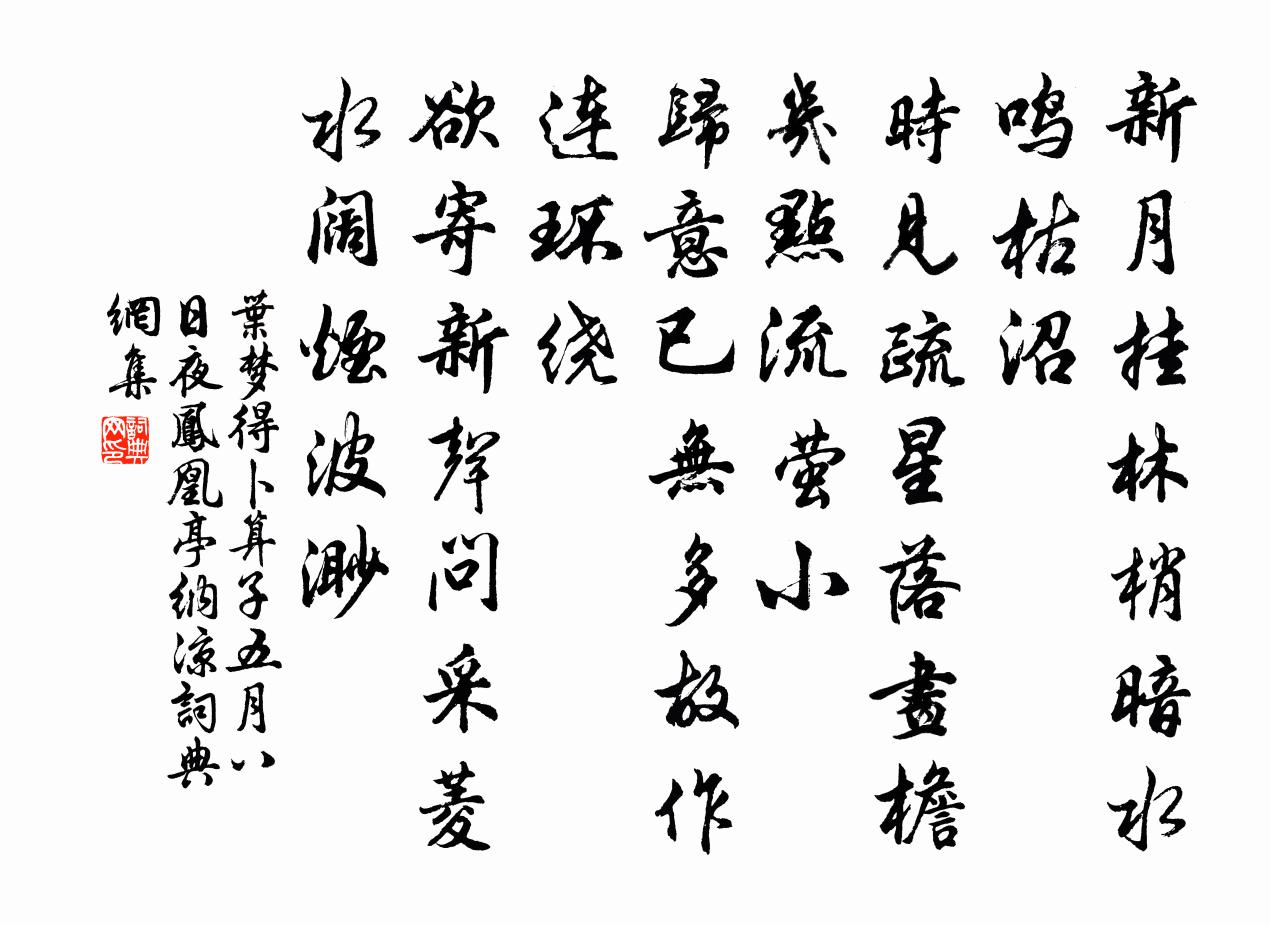 新月挂林梢暗水
鸣枯沼
時見疏星落畫檐
幾點流萤小
歸意已無多故作
连环绕
欲寄新聲問采菱
水阔煙波渺
葉梦得卜算子五月八
日夜鳳凰亭纳凉詞典
網集
詞典
网印